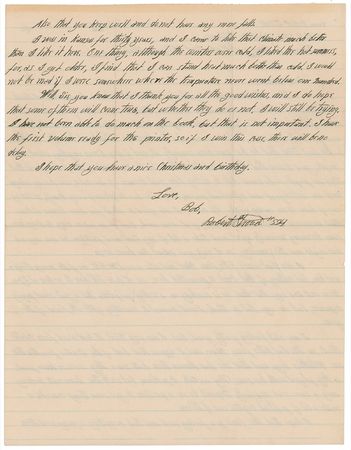 Also that you keep well and do not have any more falls.
I was in Kansas for thirty years, and I came to like that climate much better
than I like it here. One thing, although the winters were cold, I liked the hot summers,
for, as I get older, I find that I can stand heat much better than cold. I would
not be mad if I were somewhere where the temperature never went below one hundred.
you know that I thank you for all the good wishes, and I do hope
that some of them will come true, but whether they do or not, I will still be trying.
I have not been able to do much on the book, but that is not important. I have
the first volume ready for the printer, so if I win this case, there will be no
delay.
I hope that you have a nice Christmas and birthday.
Love,
Bob,
Robert Stroud #594